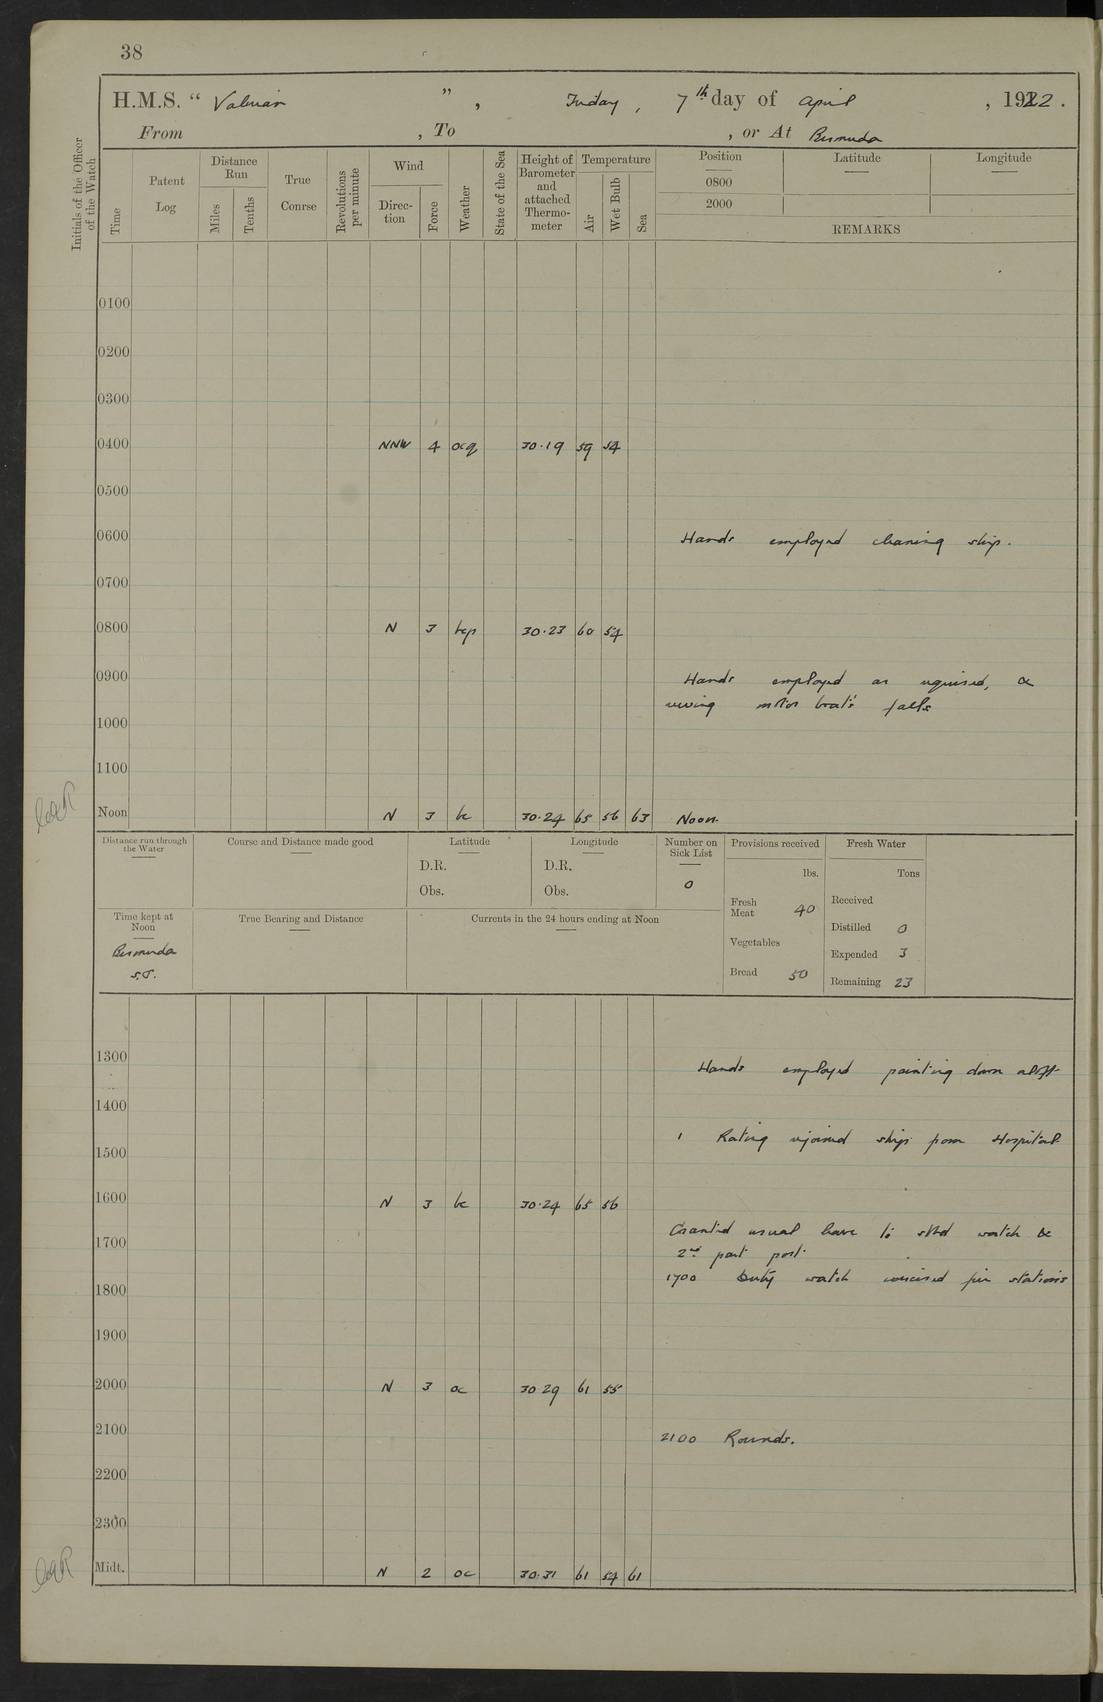 38
H.M.S. “ Valerian ” , Friday , 7th day of April , 1922 .
From , To , or At Bermuda
Initials of the Officer of the Watch
Time
Patent Log
Distance Run
Miles
Tenths
True Course
Revolutions per minute
Wind
Direction
Force
Weather
State of the Sea
Height of Barometer and attached Thermometer
Temperature
Air
Wet Bulb
Sea
Position Latitude Longitude
0800
2000
REMARKS
0100
0200
0300
0400 NNW 4 ocq 30.19 59 54
0500
0600 Hands employed cleaning ship.
0700
0800 N 3 bcp 30.23 60 54
0900 Hands employed as required, &
reeving motor boat's falls
1000
1100
Noon N 3 bc 30.24 65 56 63 Noon.
Distance run through the Water
Course and Distance made good
Latitude
D.R.
Obs.
Longitude
D.R.
Obs.
Number on Sick List
0
Provisions received
lbs.
Fresh Meat 40
Vegetables
Bread 50
Fresh Water
Tons
Received
Distilled 0
Expended 3
Remaining 23
Time kept at Noon
Bermuda
S.T.
True Bearing and Distance
Currents in the 24 hours ending at Noon
1300 Hands employed painting down aloft
1400
1 Rating rejoined ship from Hospital
1500
1600 N 3 bc 30.24 65 56
Granted usual leave to stbd watch &
1700 2nd part port.
1700 Duty watch exercised fire stations
1800
1900
2000 N 3 oc 30 29 61 55
2100 2100 Rounds.
2200
2300
Midt. N 2 oc 30.31 61 54 61